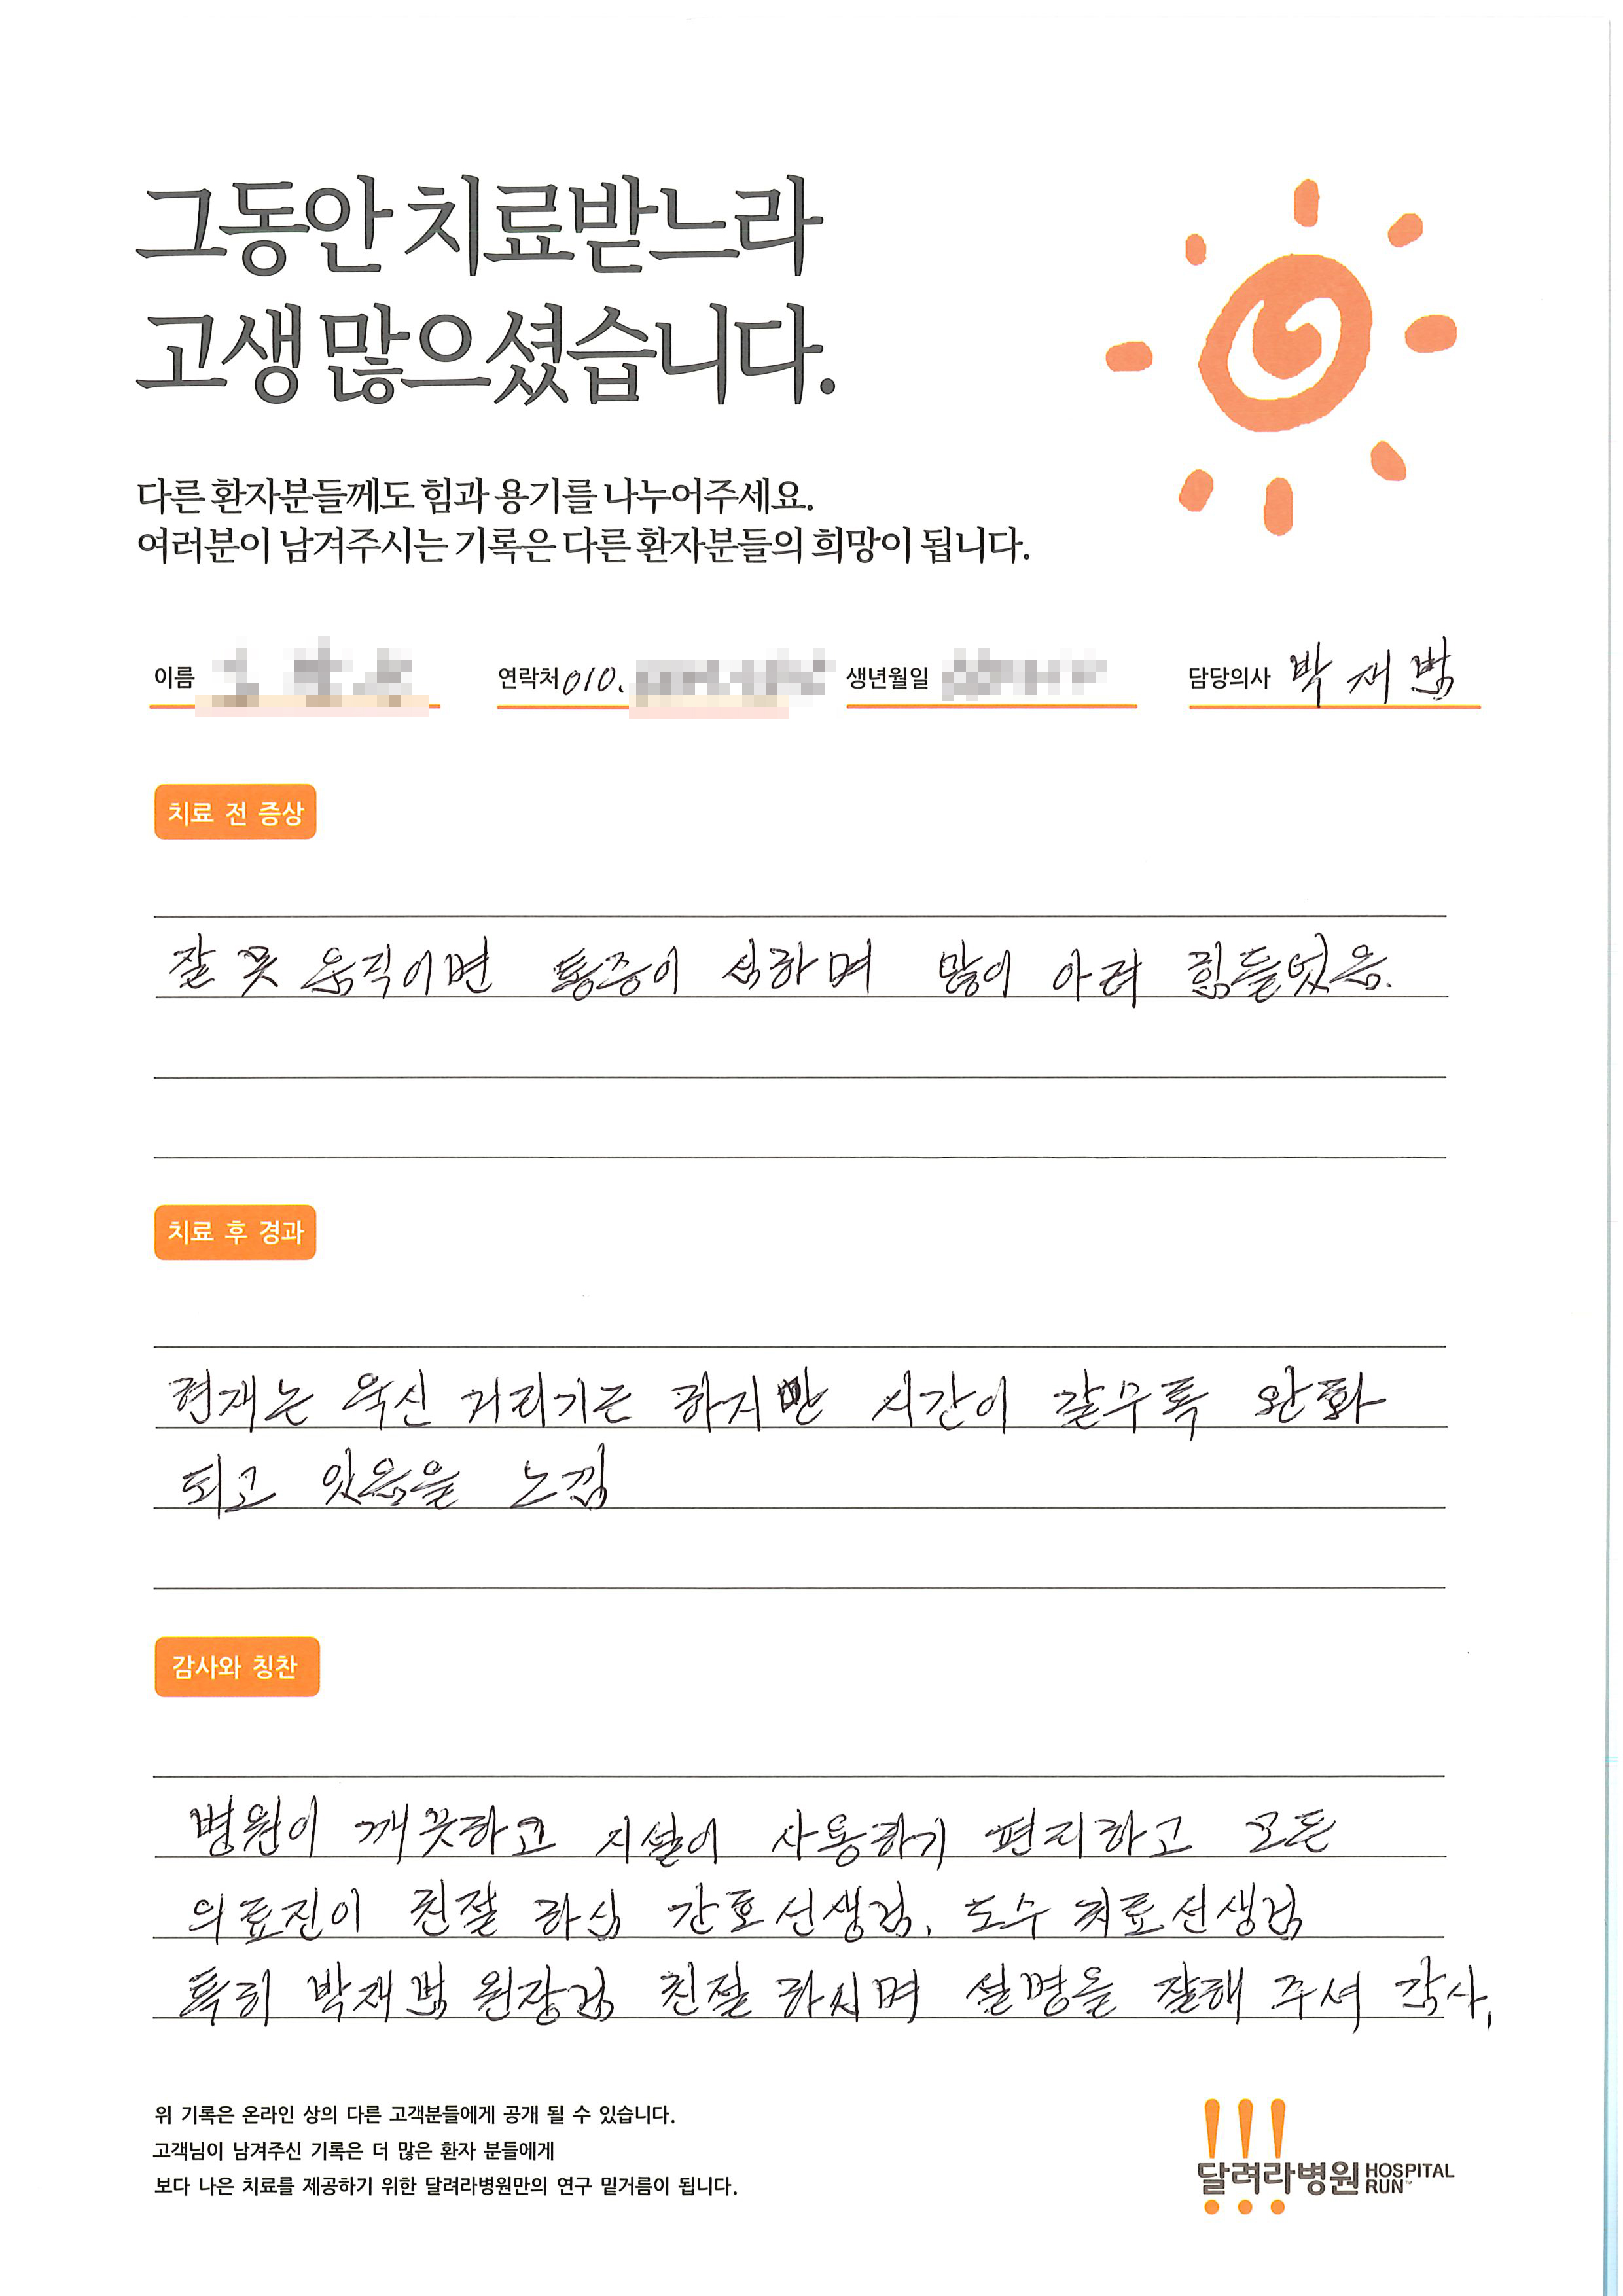 그동안 치료받느라
고생 많으셨습니다.
다른 환자분들께도 힘과 용기를 나누어주세요.
여러분이 남겨주시는 기록은 다른 환자분들의 희망이 됩니다.
이름 연락처 010. 생년월일 담당의사 박재범
치료 전 증상
잘 못 움직이면 통증이 심하며 많이 아려 힘들었음.
치료 후 경과
현재는 욱신 거리기는 하지만 시간이 갈수록 완화
되고 있음을 느낌
감사와 칭찬
병원이 깨끗하고 시설이 사용하기 편리하고 모든
의료진이 친절 하심 간호선생님, 도수 치료선생님
특히 박재범 원장님 친절 하시며 설명을 잘해 주셔 감사,
위 기록은 온라인 상의 다른 고객분들에게 공개 될 수 있습니다.
고객님이 남겨주신 기록은 더 많은 환자 분들에게
보다 나은 치료를 제공하기 위한 달려라병원만의 연구 밑거름이 됩니다.
!!!
달려라병원 HOSPITAL
RUN™